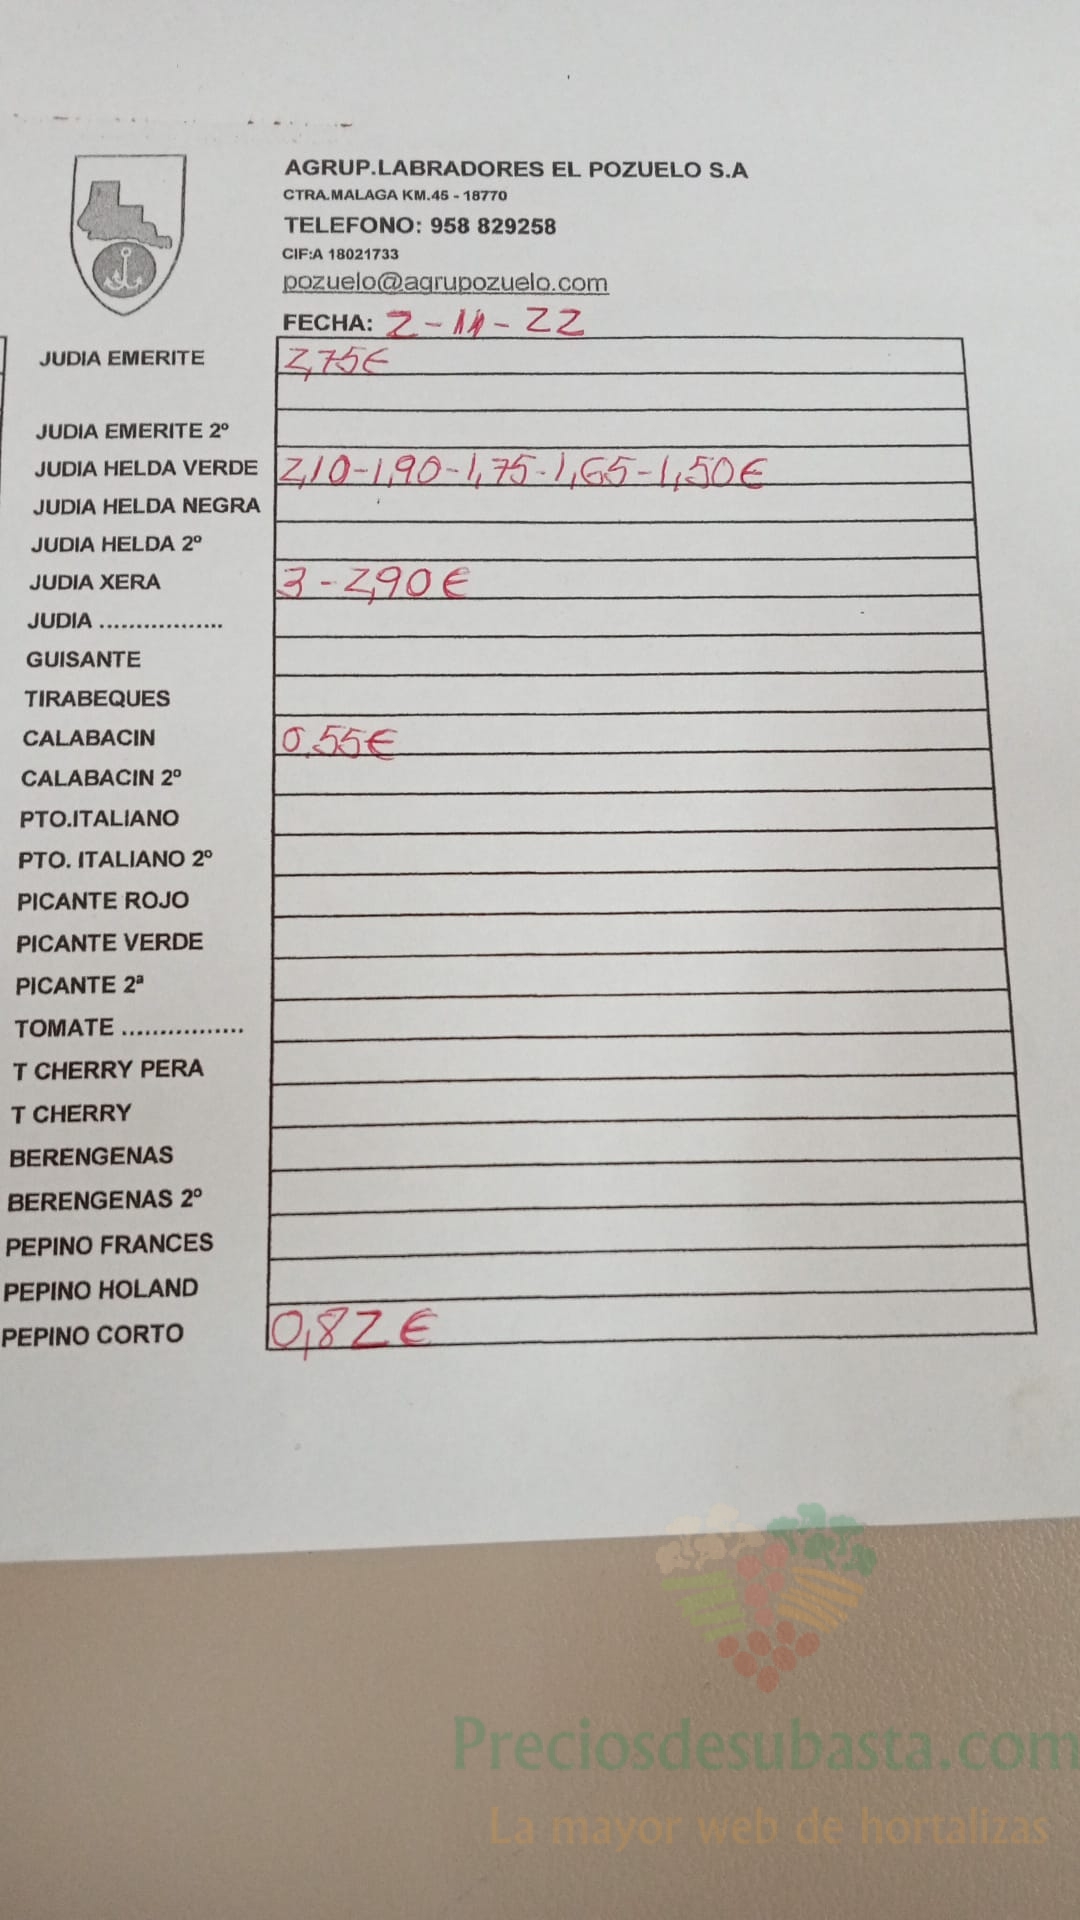 AGRUP.LABRADORES EL POZUELO S.A
CTRA.MALAGA KM.45 - 18770
TELEFONO: 958 829258
CIF:A 18021733
pozuelo@agrupozuelo.com
FECHA: 2-11-22
JUDIA EMERITE 2,75€
JUDIA EMERITE 2º
JUDIA HELDA VERDE 2,10-1,90-1,75-1,65-1,50€
JUDIA HELDA NEGRA
JUDIA HELDA 2º
JUDIA XERA 3-2,90€
JUDIA .................
GUISANTE
TIRABEQUES
CALABACIN 0,55€
CALABACIN 2º
PTO.ITALIANO
PTO. ITALIANO 2º
PICANTE ROJO
PICANTE VERDE
PICANTE 2ª
TOMATE ................
T CHERRY PERA
T CHERRY
BERENGENAS
BERENGENAS 2º
PEPINO FRANCES
PEPINO HOLAND
PEPINO CORTO 0,82€
Preciosdesubasta.com
La mayor web de hortalizas